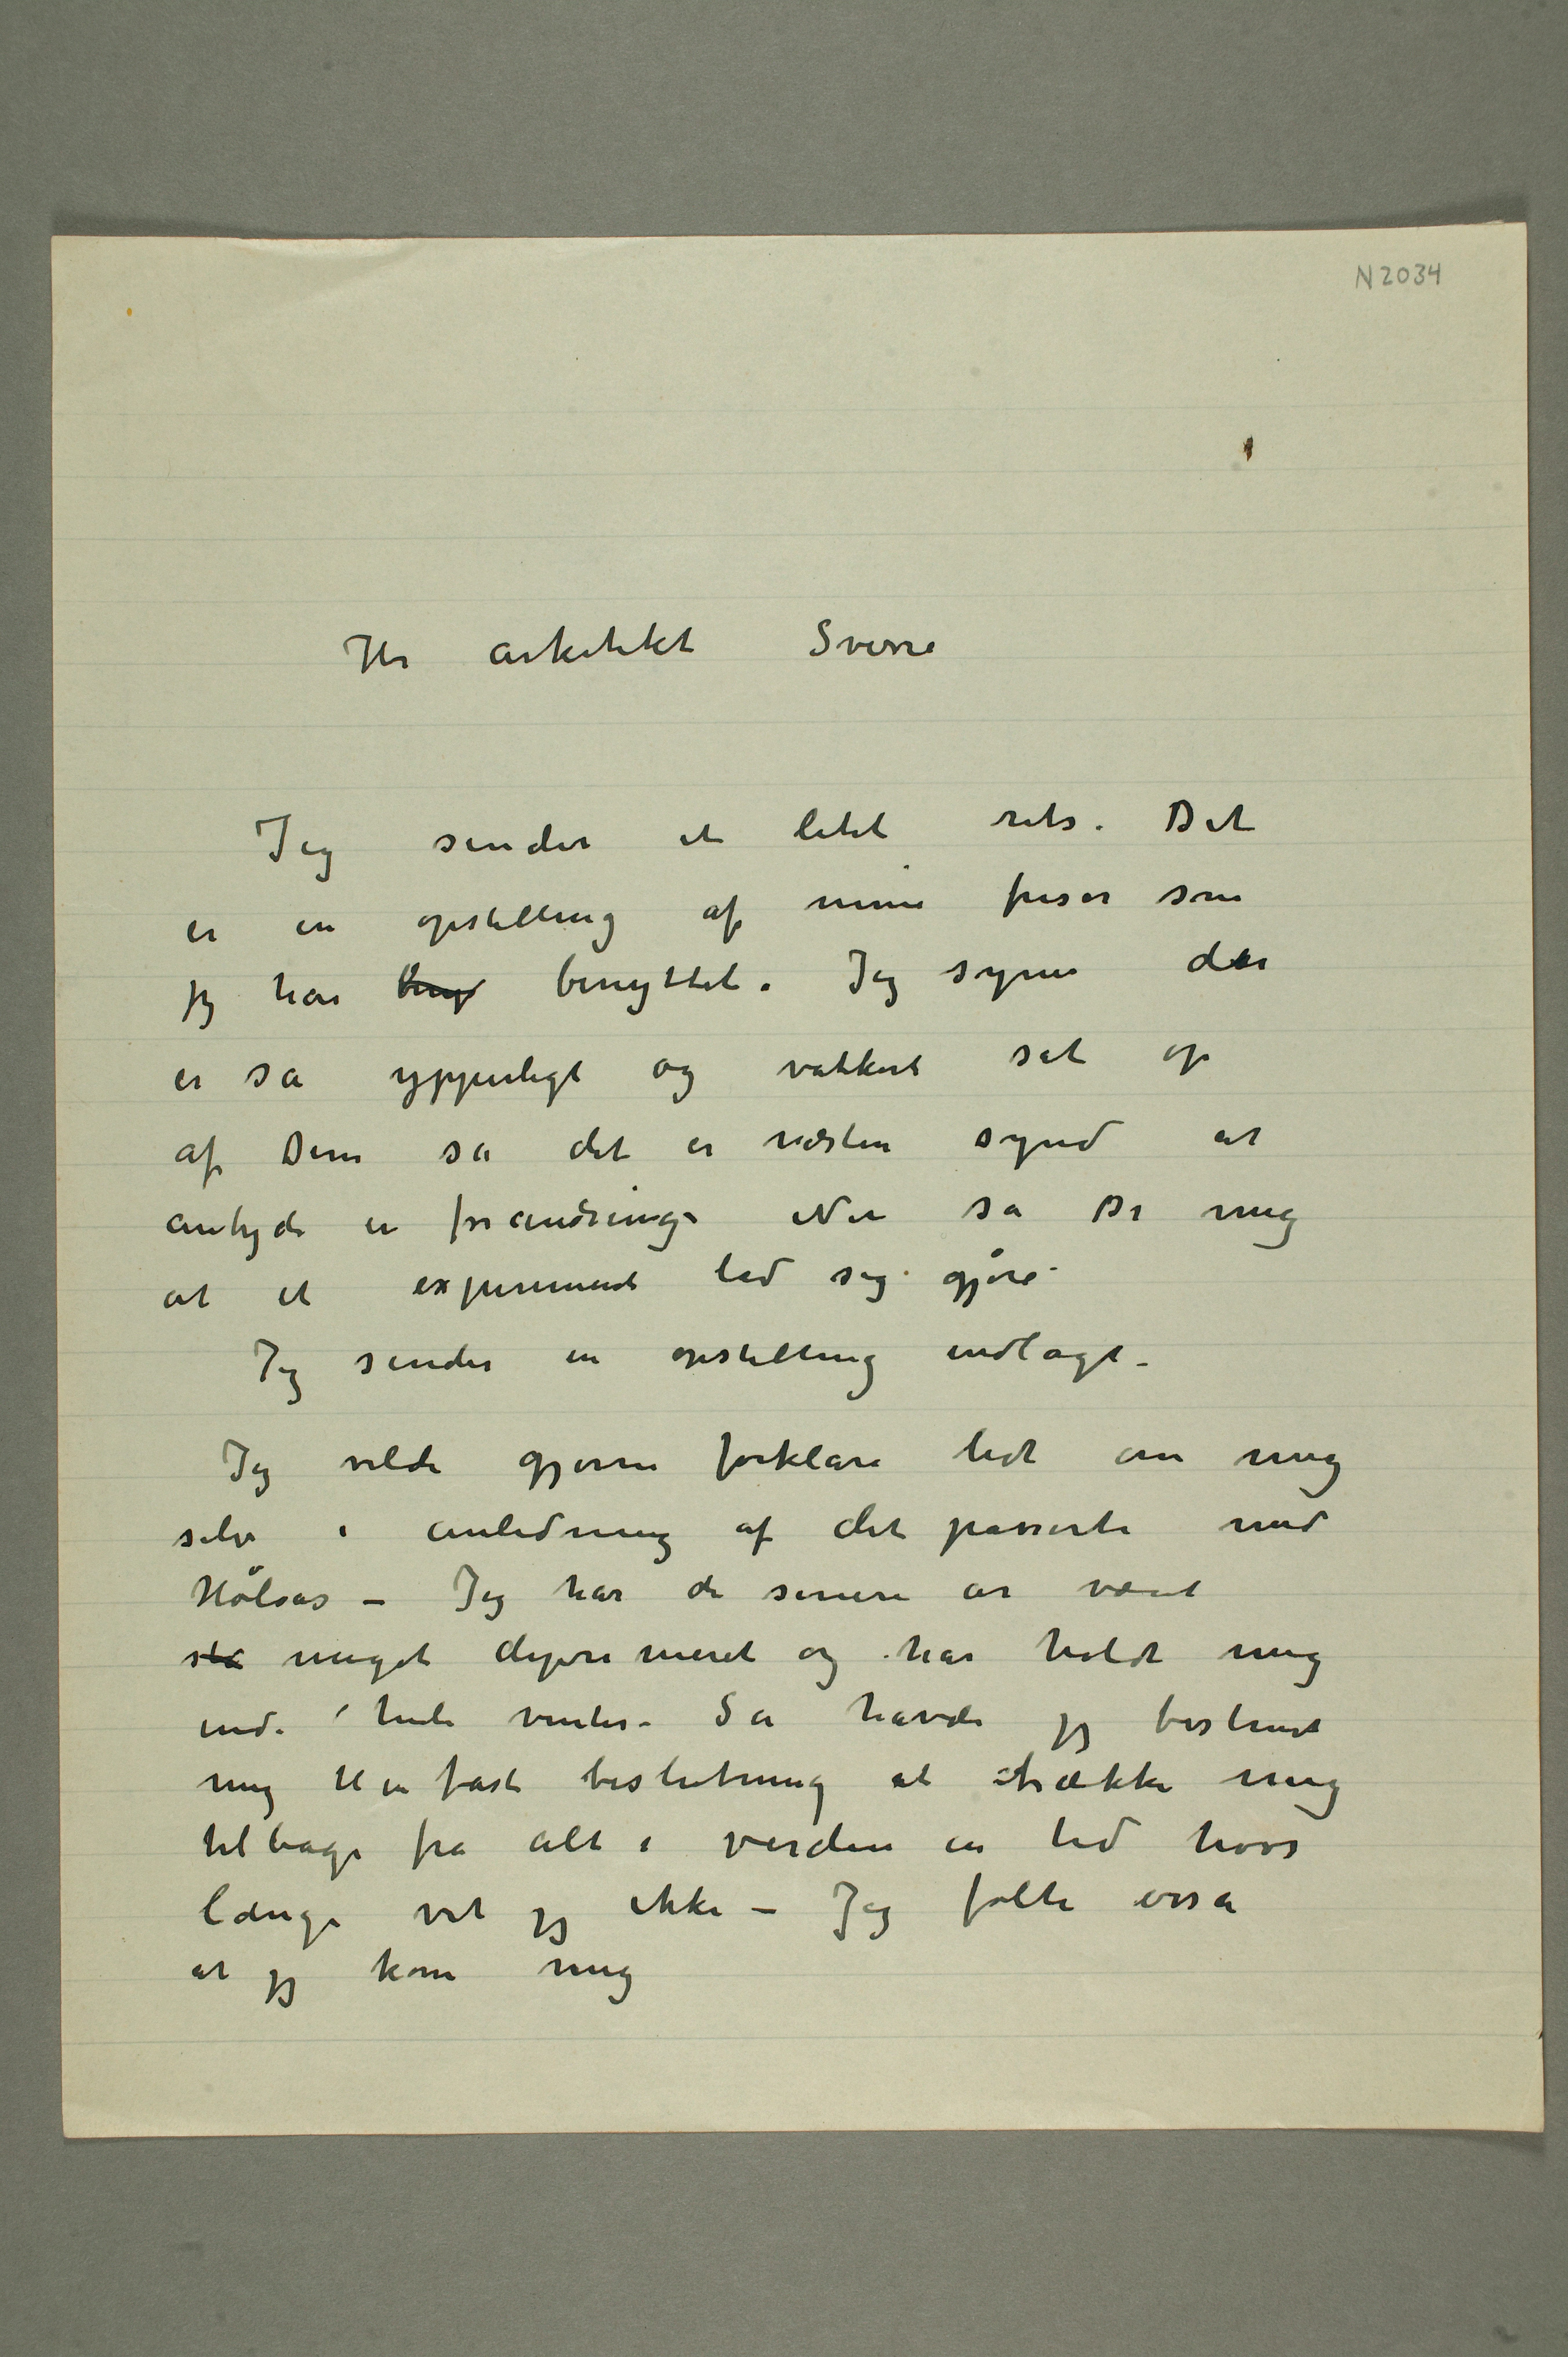 N 2034
Hr arkitekt Sverre
Jeg sender et litet rids. Det
er en opstilling af mine friser som
jeg har beny benyttet. Jeg synes der
er så ypperligt og vakkert sat op
af Dem så det er næsten synd at
antyde en forandring. Nu sa De mig
at et experiment lod sig gjøre.
Jeg sender en opstilling indlagt.
Jeg vilde gjerne forklare lidt om mig
selv i anledning af det passerte med
– Jeg har de senere år været
meget deprimeret og har holdt mig
inde i hele vinter. Så havde jeg bestemt
mig til en fast beslutning at trække mig
tilbage fra alt i verden en tid hvor
længe vet jeg ikke – Jeg følte også
at jeg kom mig